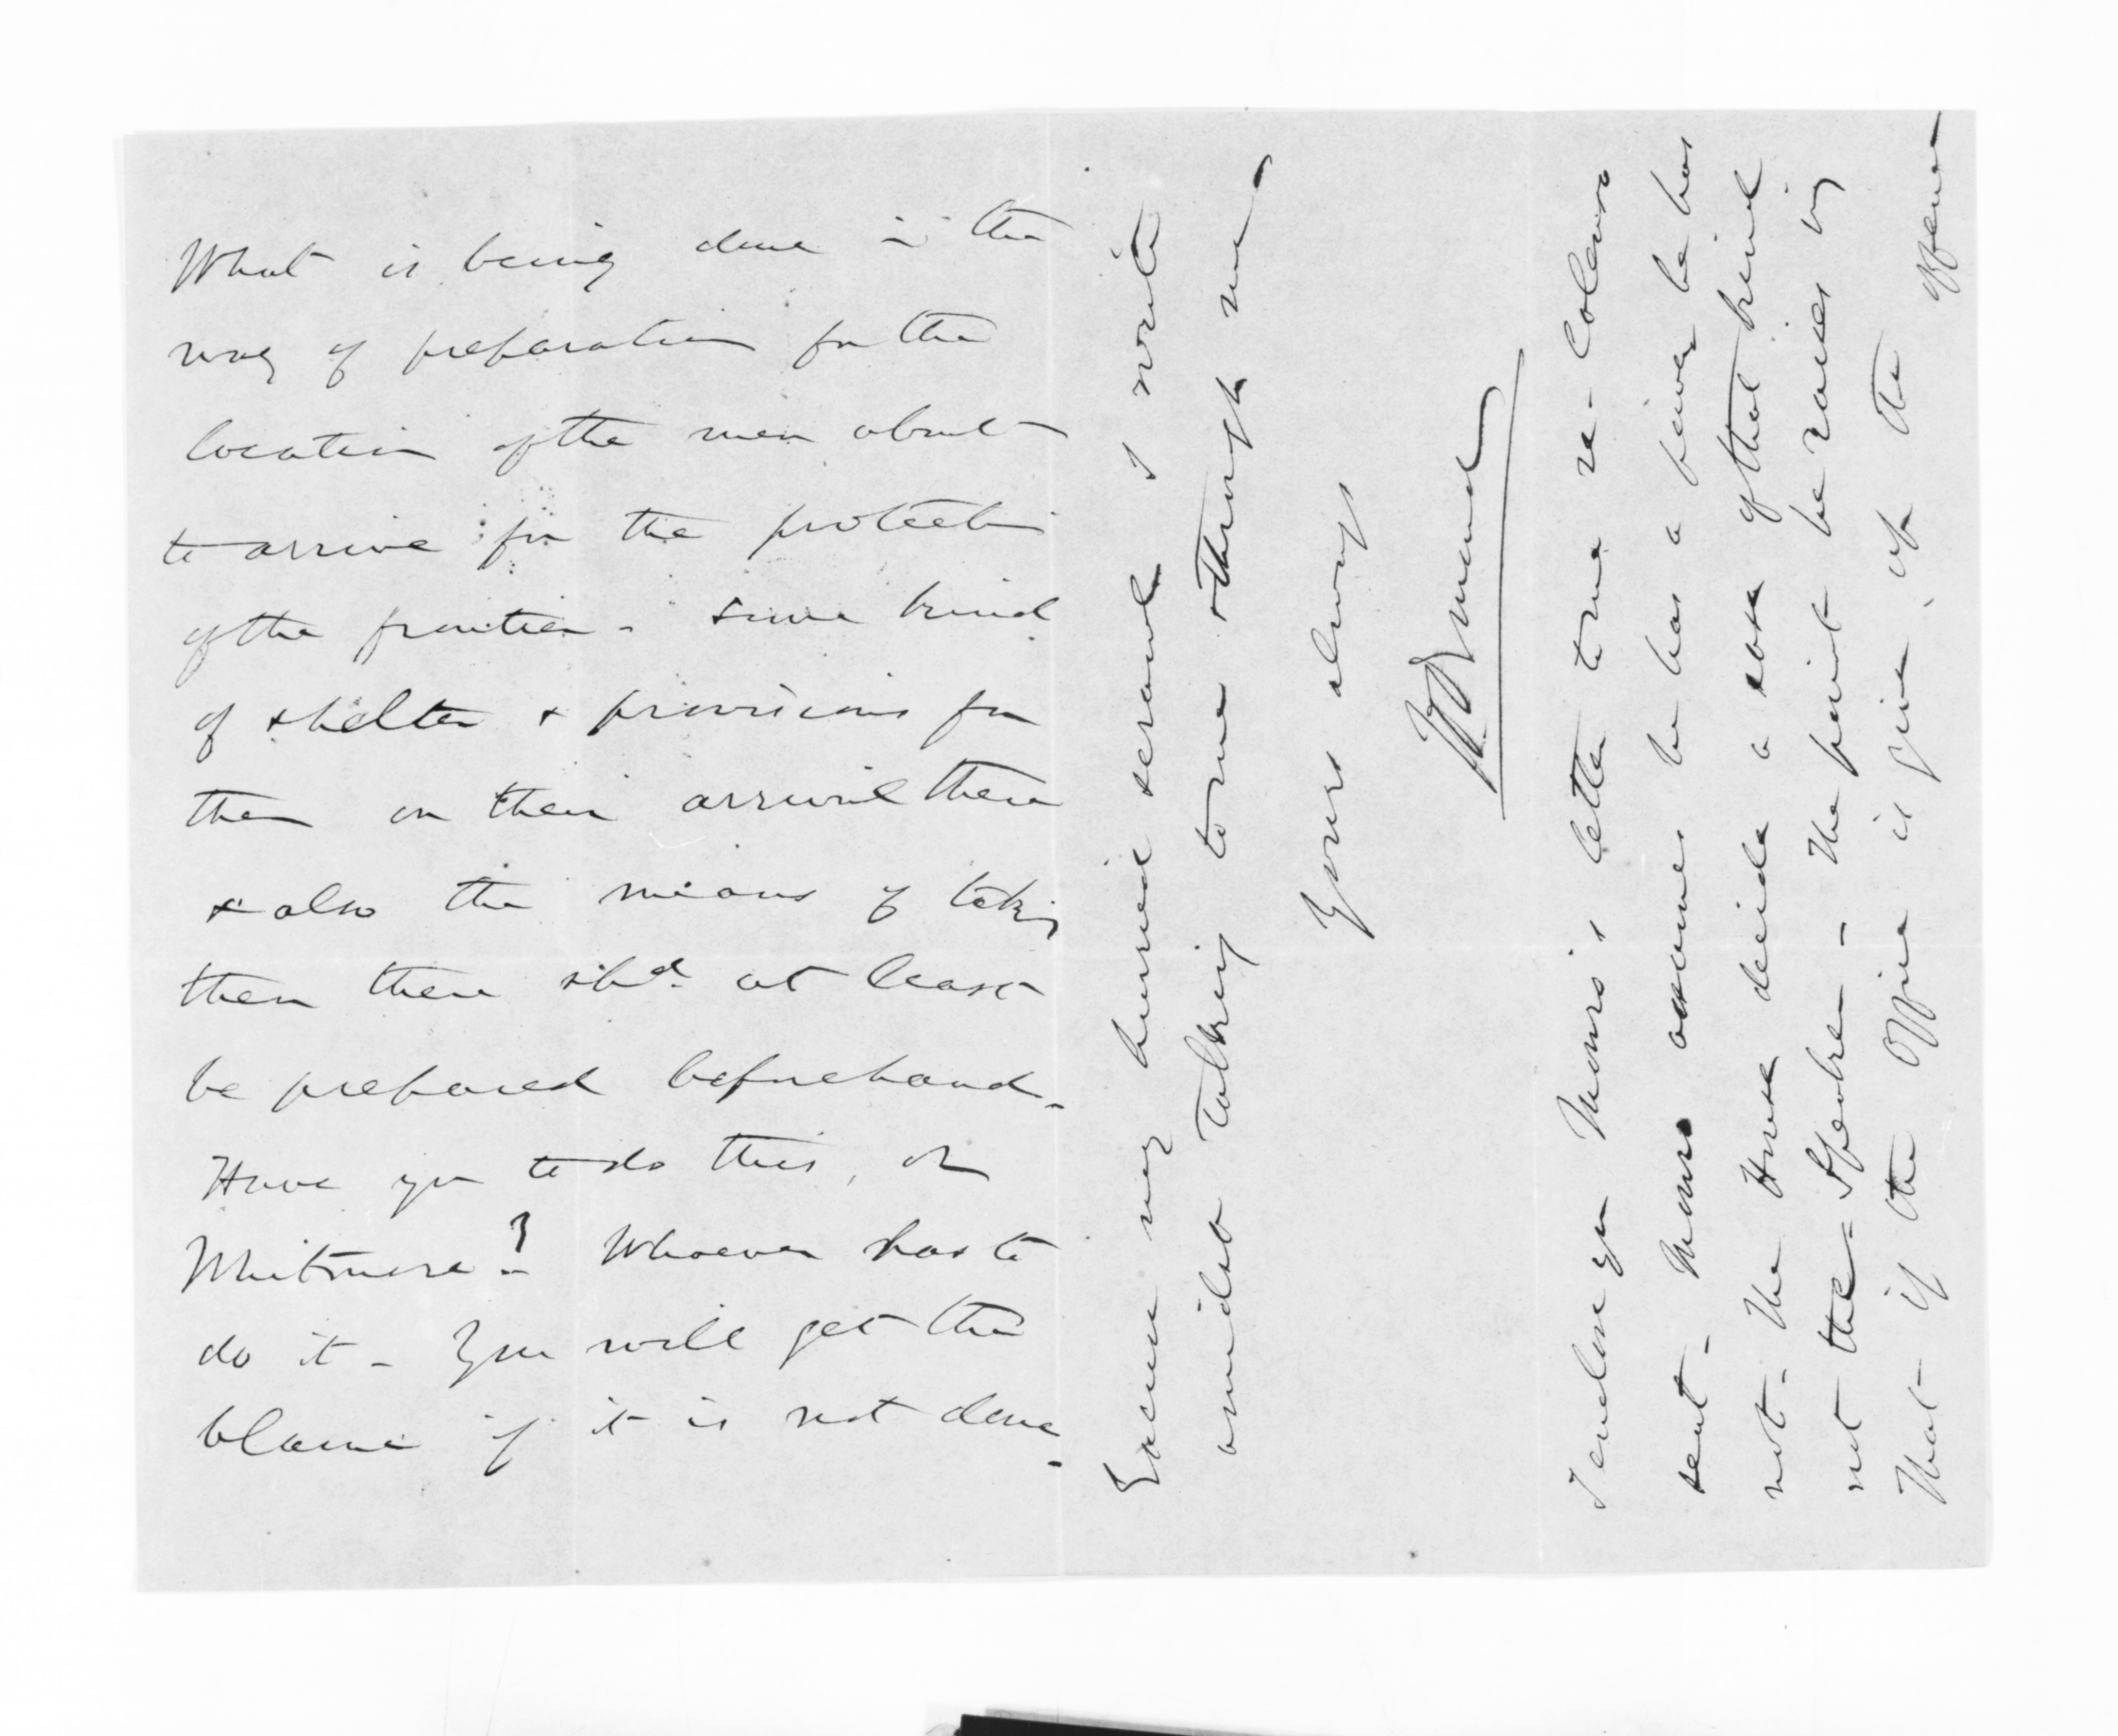 What is being done in the
way of preparation for the
location of the men about
to arrive for the protection
of the frontier - Some kind
of shelter & provisions for
them on their arrival there
& also the means of taking
them there shd. at least
be prepared beforehand -
Have you to do this, or
Whitmore? Whoever has to
do it - You will get the
blame if it is not done -
Excuse my hurried scrawl I write
amidst talking to me & through me -
Yours always
I enclose you Monro's letter to me re - Colenso
sent - Monro assumes he has a power he has
not - The House decide a case of that kind
not the Speaker - The point be raises is
that if the office is given up the offence